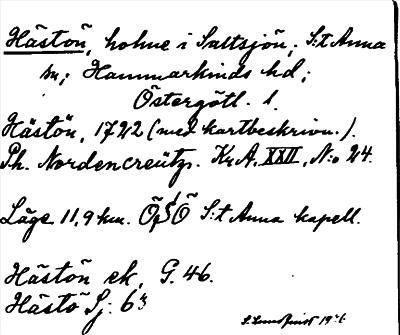 Hästön, holme i Saltsjön; S:t Anna
sn; Hammarkinds hd;
Östergötl. l.
Hästön, 1722 (med kartbeskrivn.).
Ph. Nordencreütz. Kr.A. XXII, N:o 24.
Läge 11,9 km. ÖSÖ S:t Anna kapell.
Hästön ek. G. 46.
Hästö Sj: 63
S. Lundqvist 19